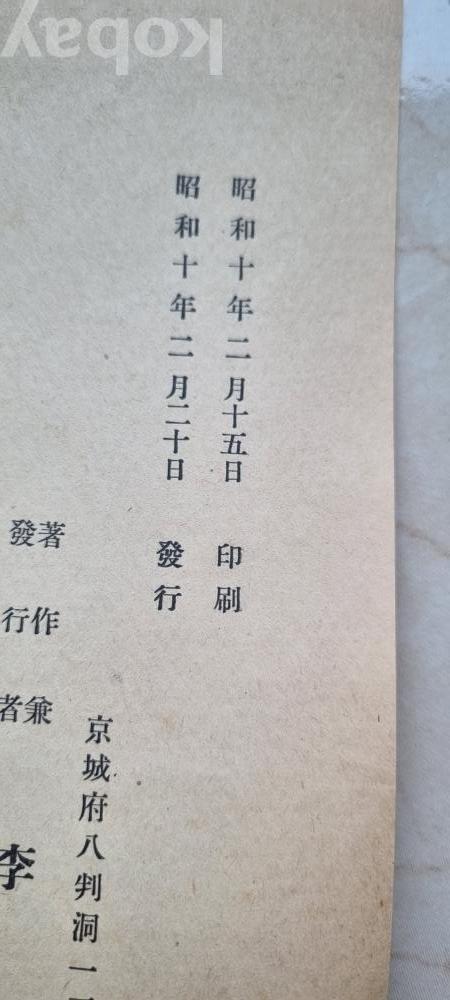 昭和十年二月十五日 印刷
昭和十年二月二十日 發行
京城府八判洞一
著作兼
發行者
李
kobay